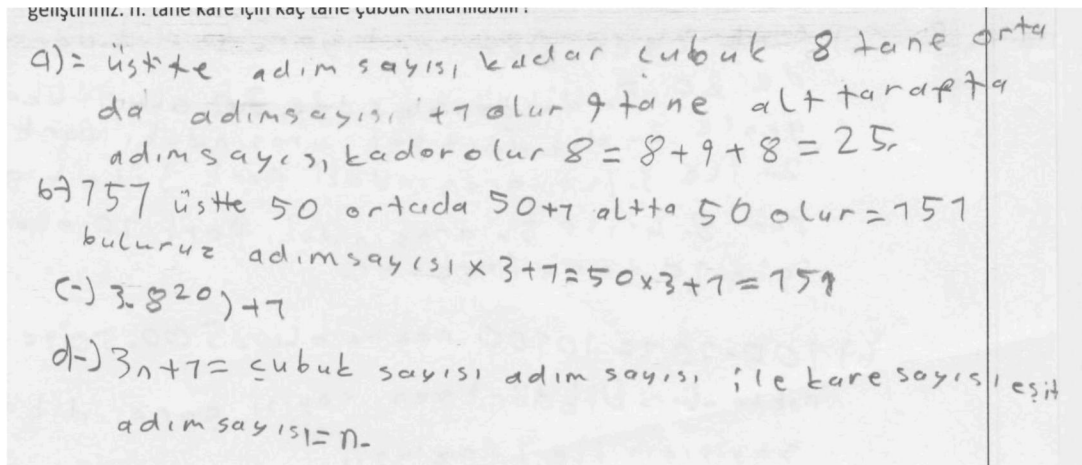 geliştiriniz. n. tane kare için kaç tane çubuk kullanılabilir?
a)= üstte adım sayısı kadar çubuk 8 tane orta
da adımsayısı +1 olur 9 tane alt tarafta
adımsayısı kadar olur 8 = 8+9+8 = 25
b-) 151 üstte 50 ortada 50+1 altta 50 olur = 151
buluruz adımsayısı x 3+1 = 50x3+1 = 151
c-) 3.8²⁰)+1
d-) 3n+1 = çubuk sayısı adım sayısı ile kare sayısı eşit
adım sayısı = n-